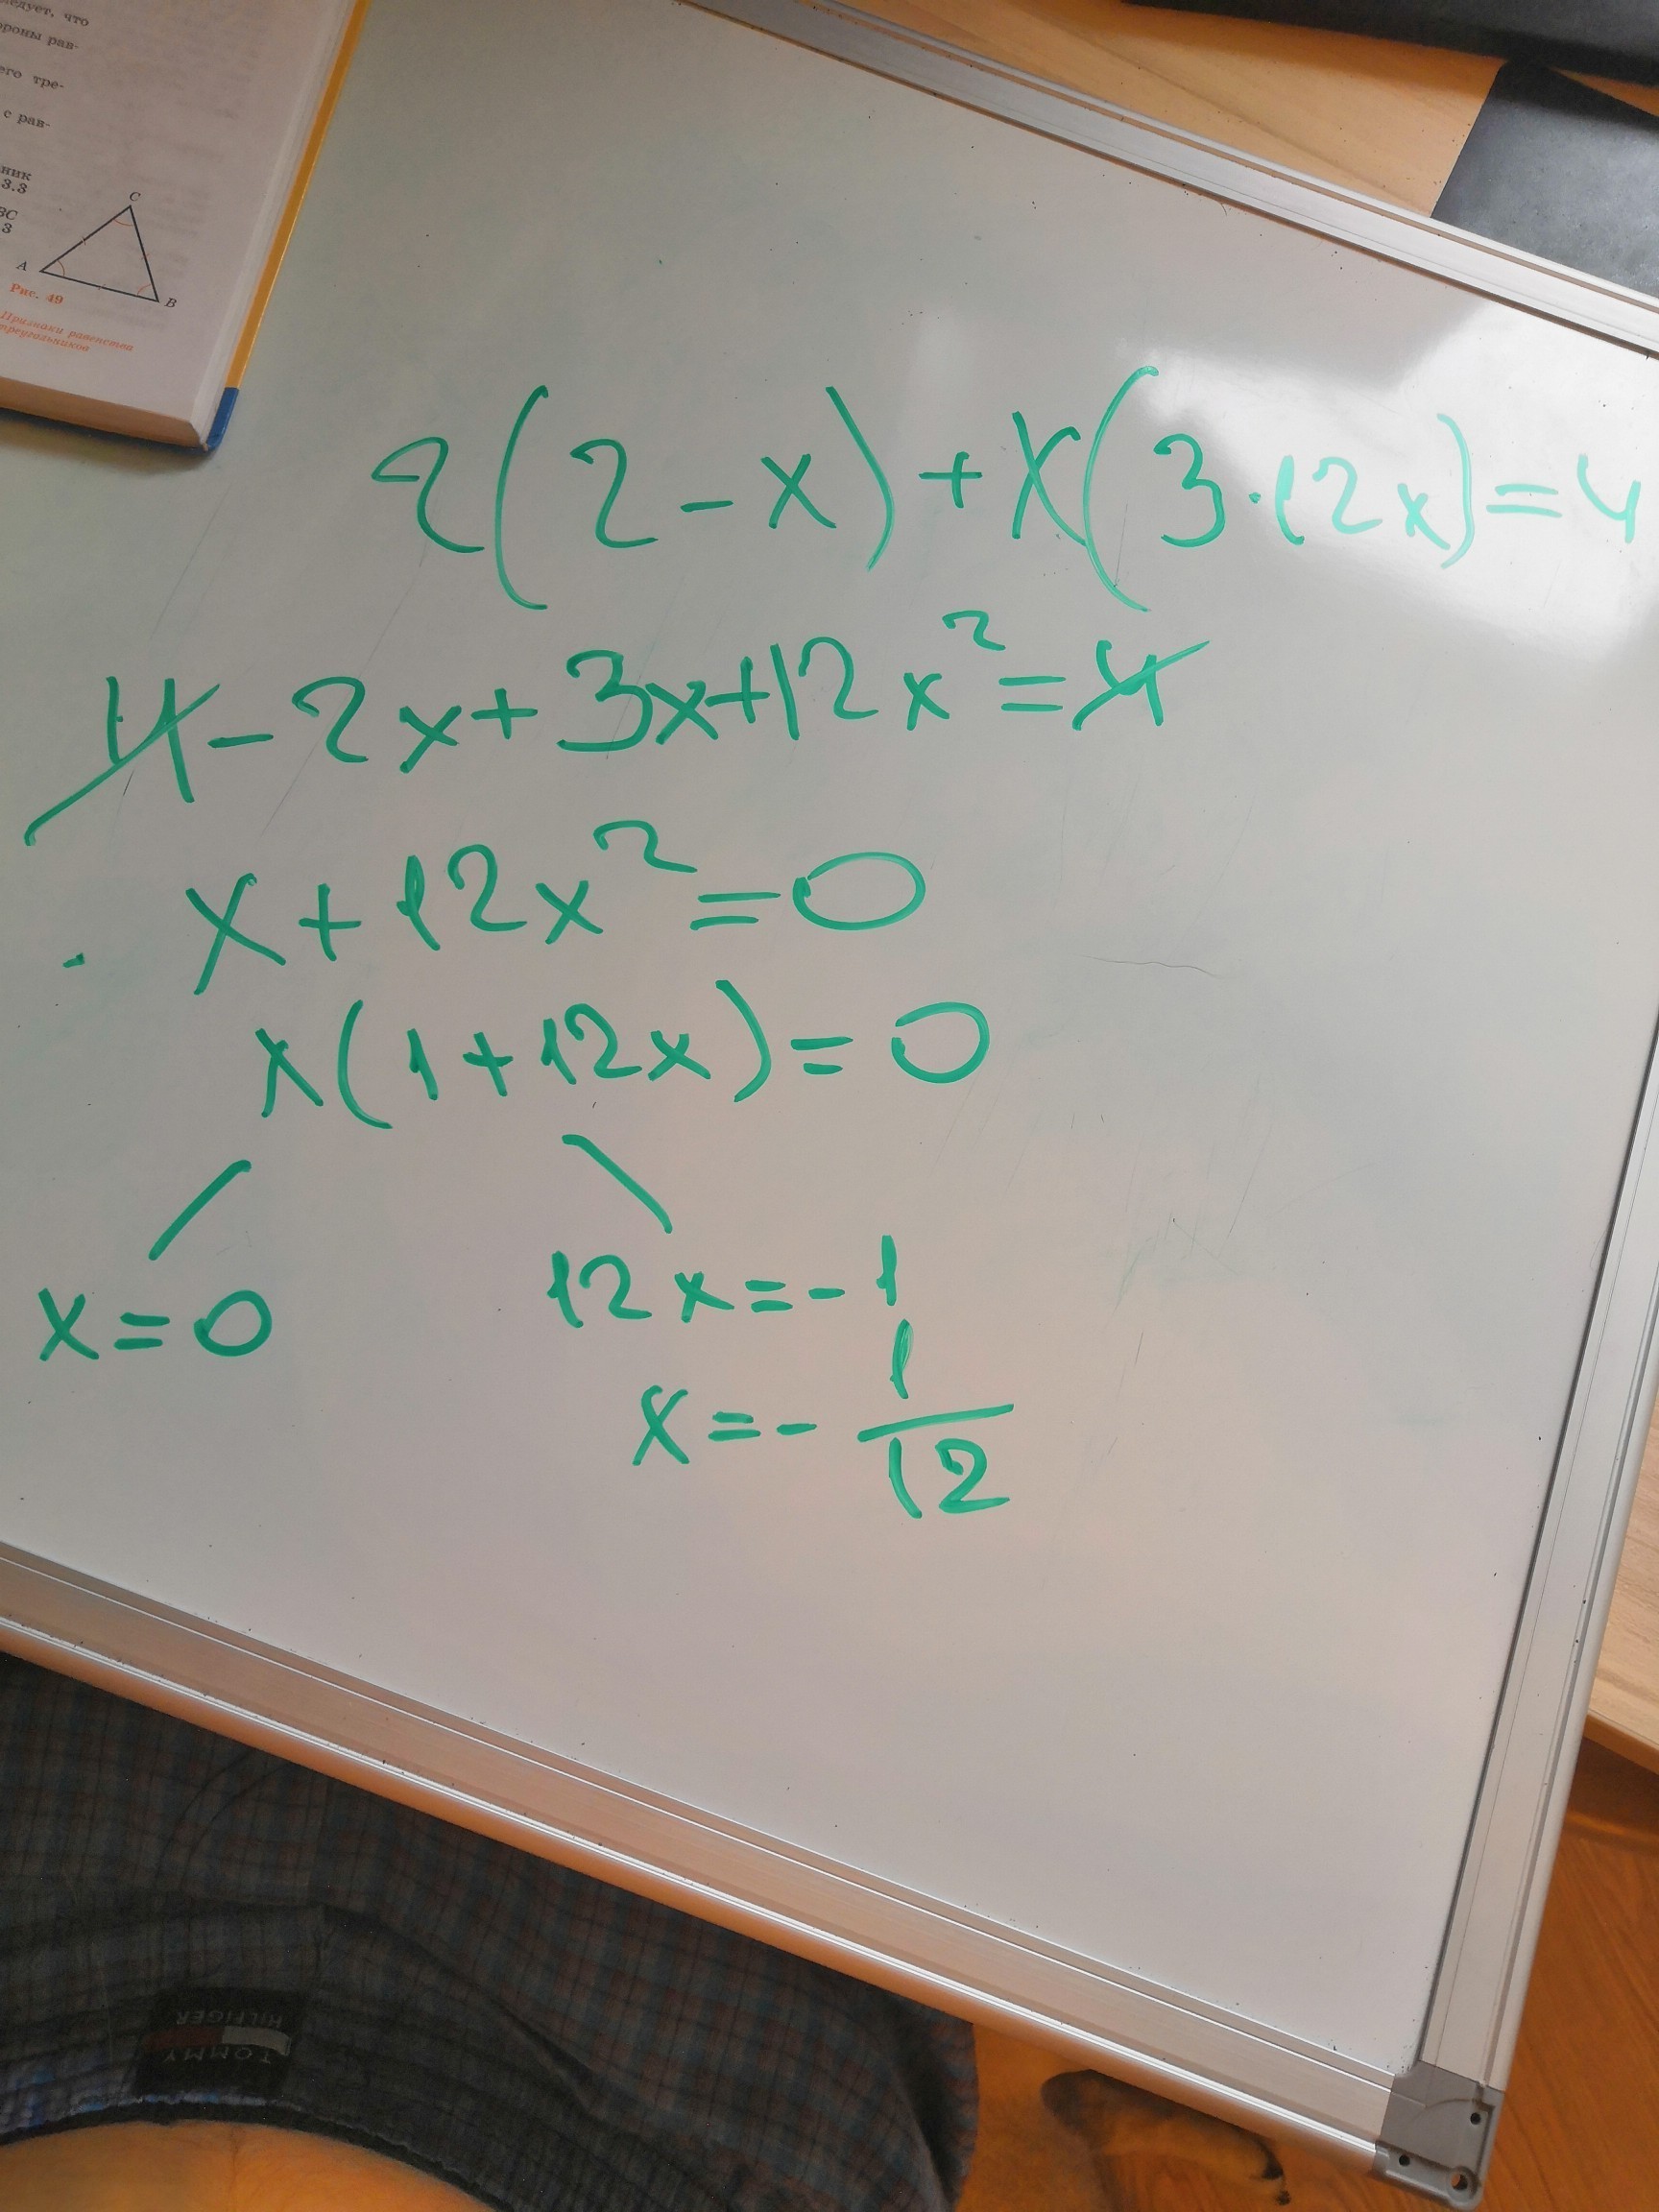 ледует, что
ороны рав-
его тре-
с рав-
ник
3.3
ВС
3
C
A
B
Рис. 49
Признаки равенства
треугольников
2(2-x)+x(3·12x)=4
4-2x+3x+12x²=4
x+12x²=0
x(1+12x)=0
x=0
12x=-1
x=-1/12
TOMMY
HILFIGER